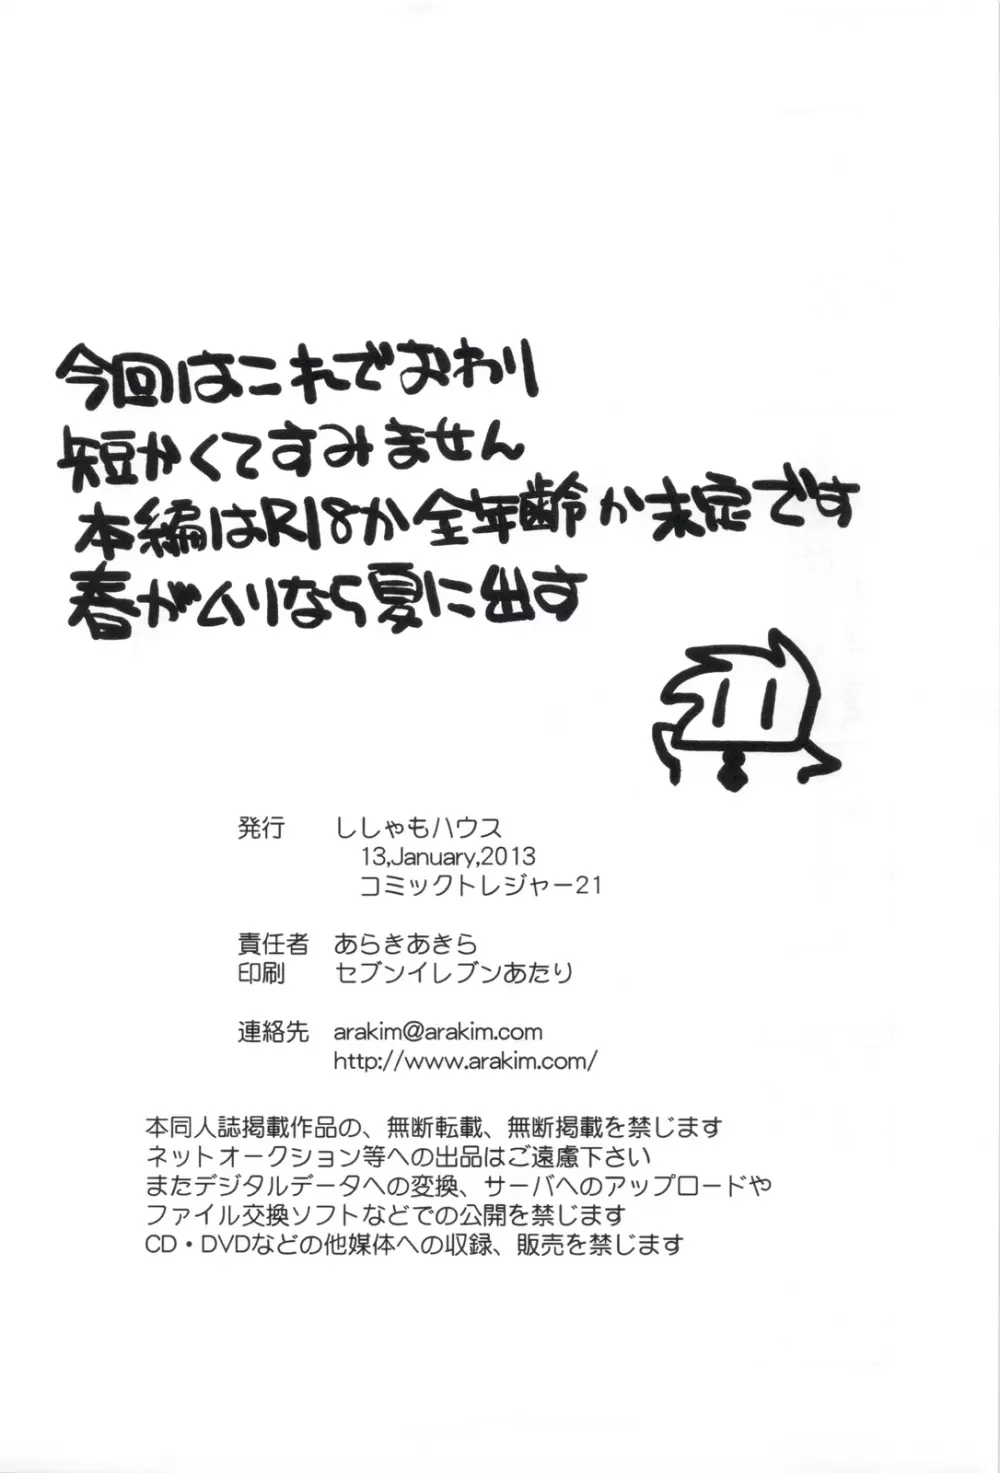 今回はこれでおわり
短かくてすみません
本編はR18か全年齢か未定です
春がムリなら夏に出す
発行 ししゃもハウス
13,January,2013
コミックトレジャー21
責任者 あらきあきら
印刷 セブンイレブンあたり
連絡先 arakim@arakim.com
http://www.arakim.com/
本同人誌掲載作品の、無断転載、無断掲載を禁じます
ネットオークション等への出品はご遠慮下さい
またデジタルデータへの変換、サーバへのアップロードや
ファイル交換ソフトなどでの公開を禁じます
CD・DVDなどの他媒体への収録、販売を禁じます